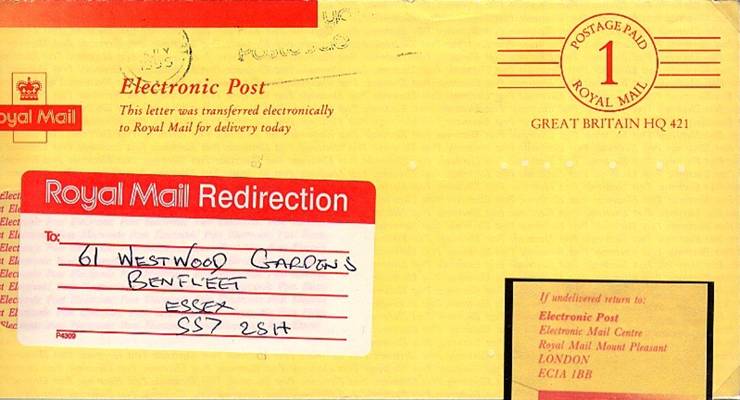 POSTAGE PAID
1
ROYAL MAIL
GREAT BRITAIN HQ 421
Electronic Post
This letter was transferred electronically
to Royal Mail for delivery today
oyal Mail
Royal Mail Redirection
To:
61 WESTWOOD GARDENS
BENFLEET
ESSEX
SS7 2SH
P4309
If undelivered return to:
Electronic Post
Electronic Mail Centre
Royal Mail Mount Pleasant
LONDON
EC1A 1BB